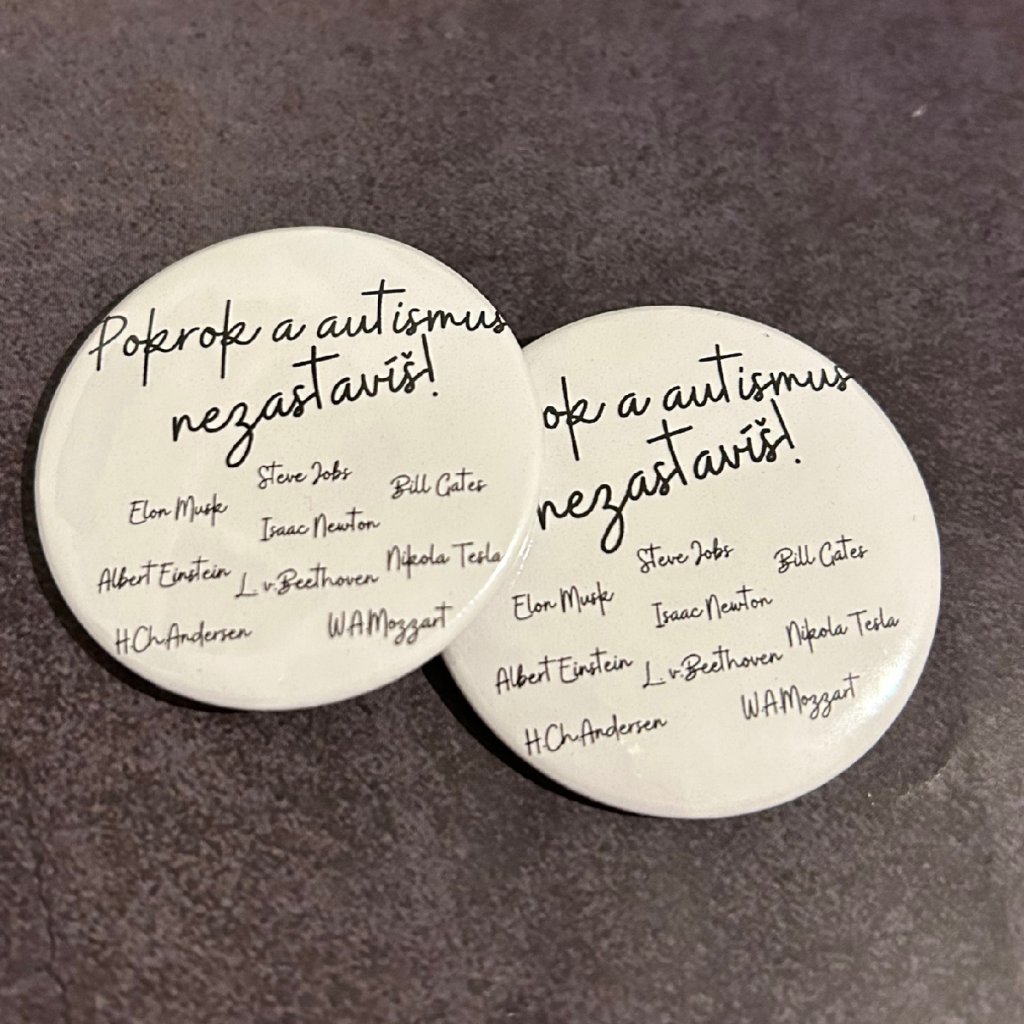 Pokrok a autismus
nezastavíš!
Steve Jobs
Bill Gates
Elon Musk
Isaac Newton
Nikola Tesla
Albert Einstein
L. v. Beethoven
H.Ch.Andersen
W.A.Mozzart
ok a autismus
nezastavíš!
Steve Jobs
Bill Gates
Elon Musk
Isaac Newton
Nikola Tesla
Albert Einstein
L. v. Beethoven
H.Ch.Andersen
W.A.Mozzart